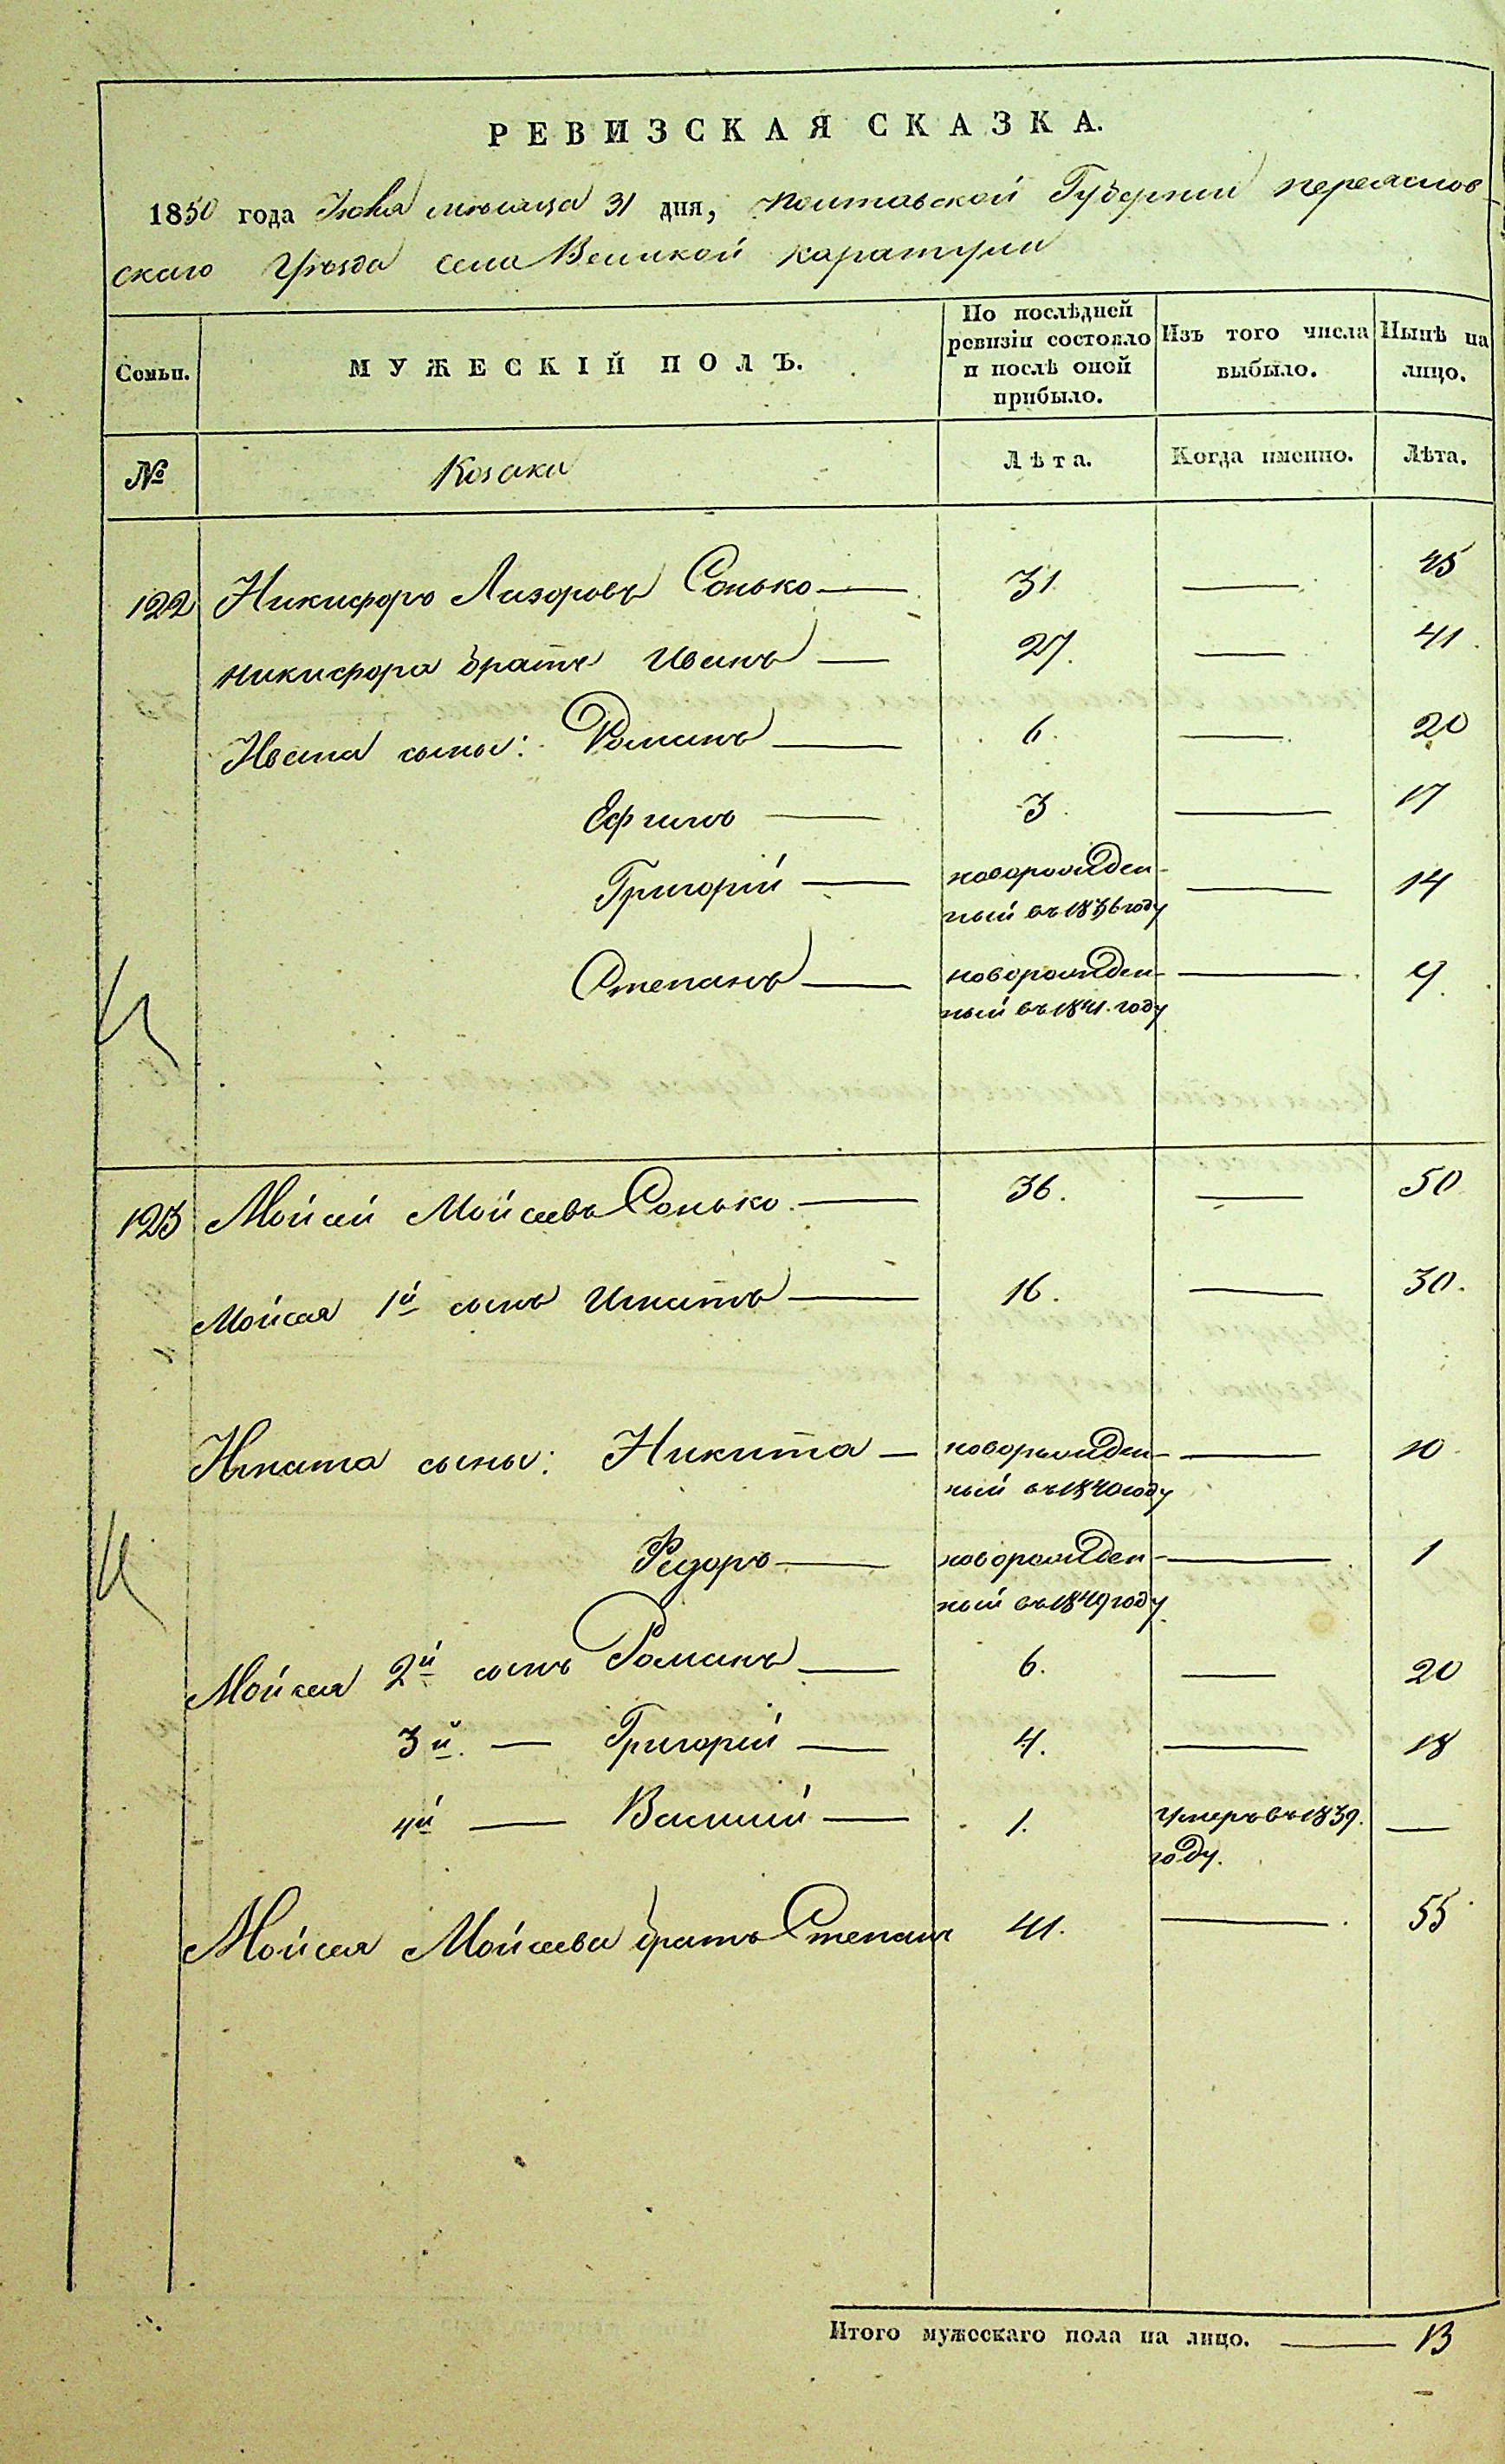 РЕВИЗСКАЯ СКАЗКА.
1850 года Июля мѣсяца 31 дня, Полтавской Губерніи переяслов-
скаго Уѣзда села Великой каратули
Семьи. МУЖЕСКІЙ ПОЛЪ. По послѣдней ревизіи состояло и послѣ оной прибыло. Изъ того числа выбыло. Нынѣ на лицо.
№ Козаки Лѣта. Когда именно. Лѣта.
122 Никифоръ Лазоровъ Сонько — 31 — 45
никифора братъ Иванъ — 27. — 41.
Ивана сыны: Романъ — 6. — 20
Ефимъ — 3. — 17
Григорій — новорожден- — 14
ный въ 1836 году
Степанъ — новорожден- — 9.
ный въ 1841. году
123 Мойсей Мойсеевъ Сонько. — 36. — 50
Мойсея 1й сынъ Игнатъ — 16. — 30.
Игната сыны: Никита — новорожден- — 10
ный въ 1840 году
Федоръ — новорожден- — 1
ный въ 1849 году
Мойсея 2й сынъ Романъ — 6. — 20
3й. — Григорій — 4. — 18
4й — Василий — 1. Умеръ въ 1839. —
году.
Мойсея Мойсеева братъ Степанъ 41. — 55
Итого мужескаго пола на лицо. — 13